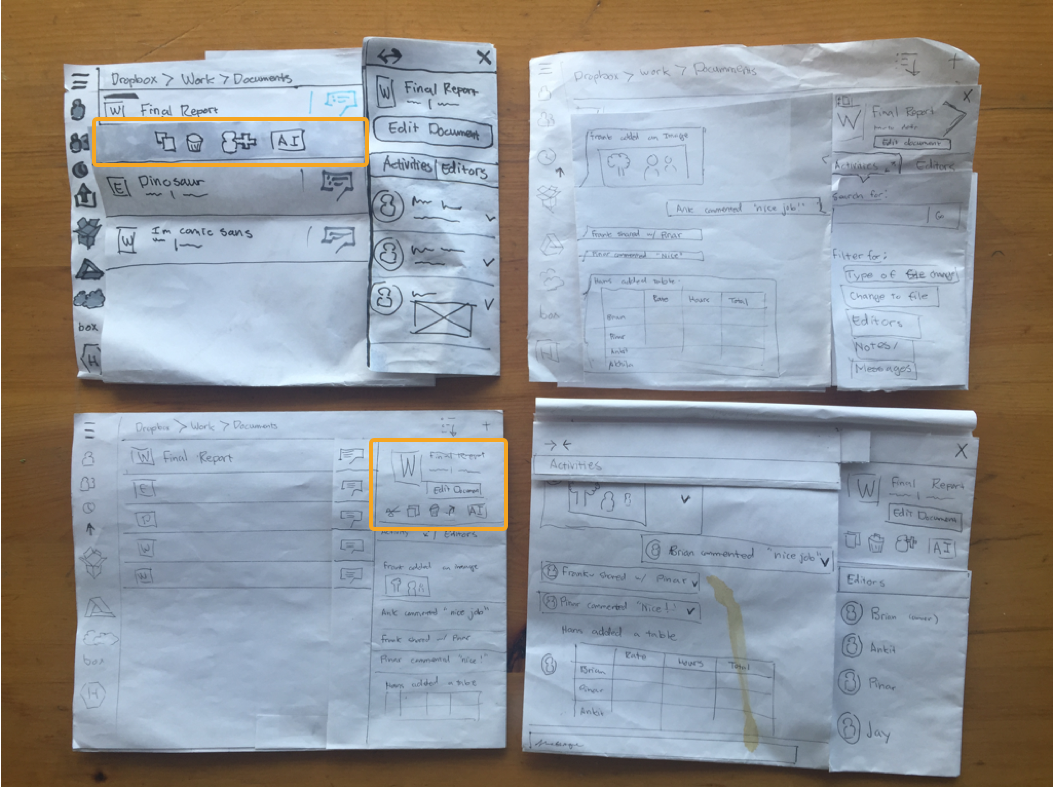 Dropbox > Work > Documents
W Final Report
AI
E Dinosaur
W Im comic sans
box
H
X
W Final Report
Edit Document
Activities | Editors
Dropbox > Work > Documents
+
box
Frank added an Image
Ank commented "nice job!"
Frank shared w/ Pinar
Pinar commented "Nice"
Ham added table
Rate Hours Total
Brian
Pinar
Ankit
X
W
Final Report
Edit document
Activities Editors
Search for:
Go
Filter for:
Type of change
Change to file
Editors
Notes/
Messages
Dropbox > Work > Documents
+
W Final Report
E
P
W
W
box
H
W Final Report
Edit Document
AI
Activity | Editors
Frank added an image
Ank commented "nice job"
Frank shared w/ Pinar
Pinar commented "nice!"
Ham added a table
Activities
Brian commented "nice job"
Frank shared w/ Pinar
Pinar commented "Nice!"
Ham added a table
Rate Hours Total
Brian
Pinar
Ankit
Message
X
W Final Report
Edit Document
AI
Editors
Brian (owner)
Ankit
Pinar
Jay